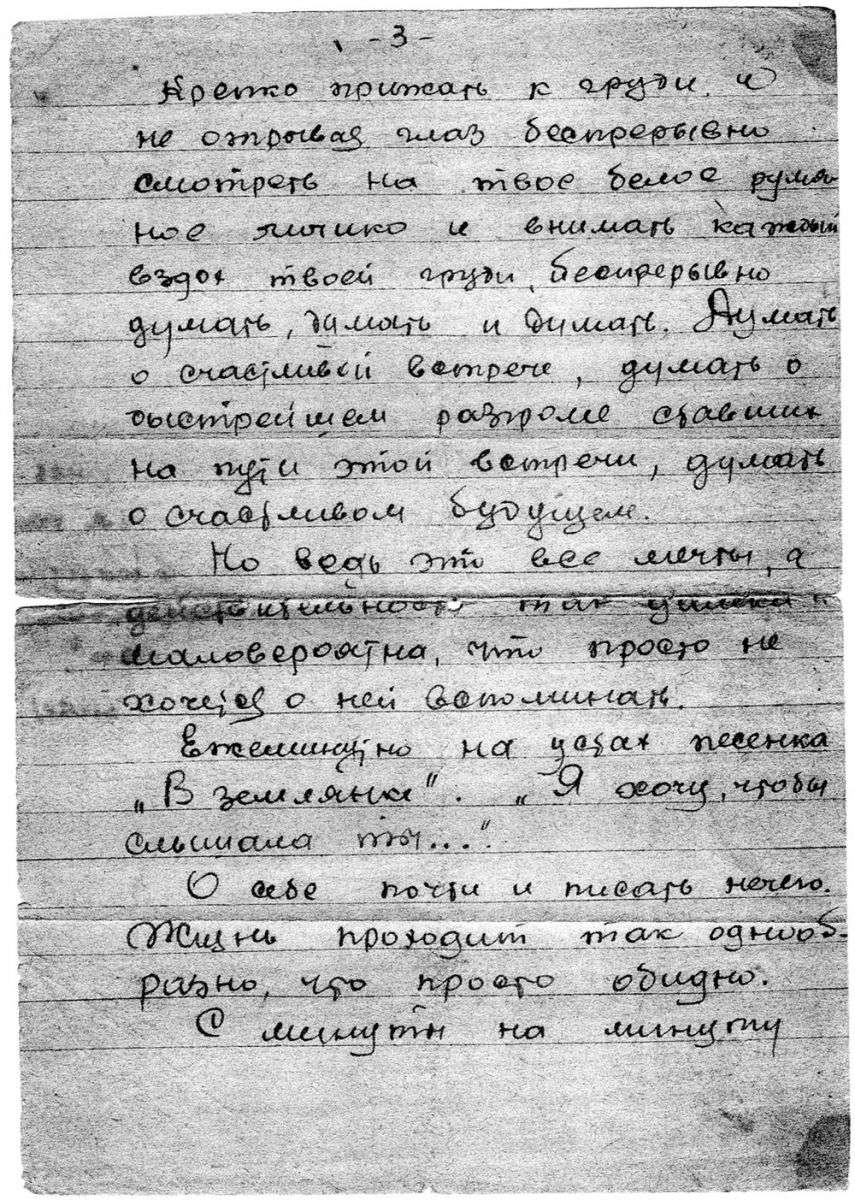 - 3 -
Крепко прижать к груди и
не отрывая глаз беспрерывно
смотреть на твое белое румя-
ное личико и внимать каждый
вздох твоей груди, беспрерывно
думать, думать и думать. Думать
о счастливой встрече, думать о
быстрейшем разгроме ставших
на пути этой встречи, думать
о счастливом будущем.
Но ведь это все мечты, а
действительность так
маловероятна, что просто не
хочется о ней вспоминать.
Ежеминутно на устах песенка
„В землянке". „Я хочу, чтобы
слышала ты..."
О себе почти и писать нечего.
Жизнь проходит так однооб-
разно, что просто обидно.
С минуты на минуту